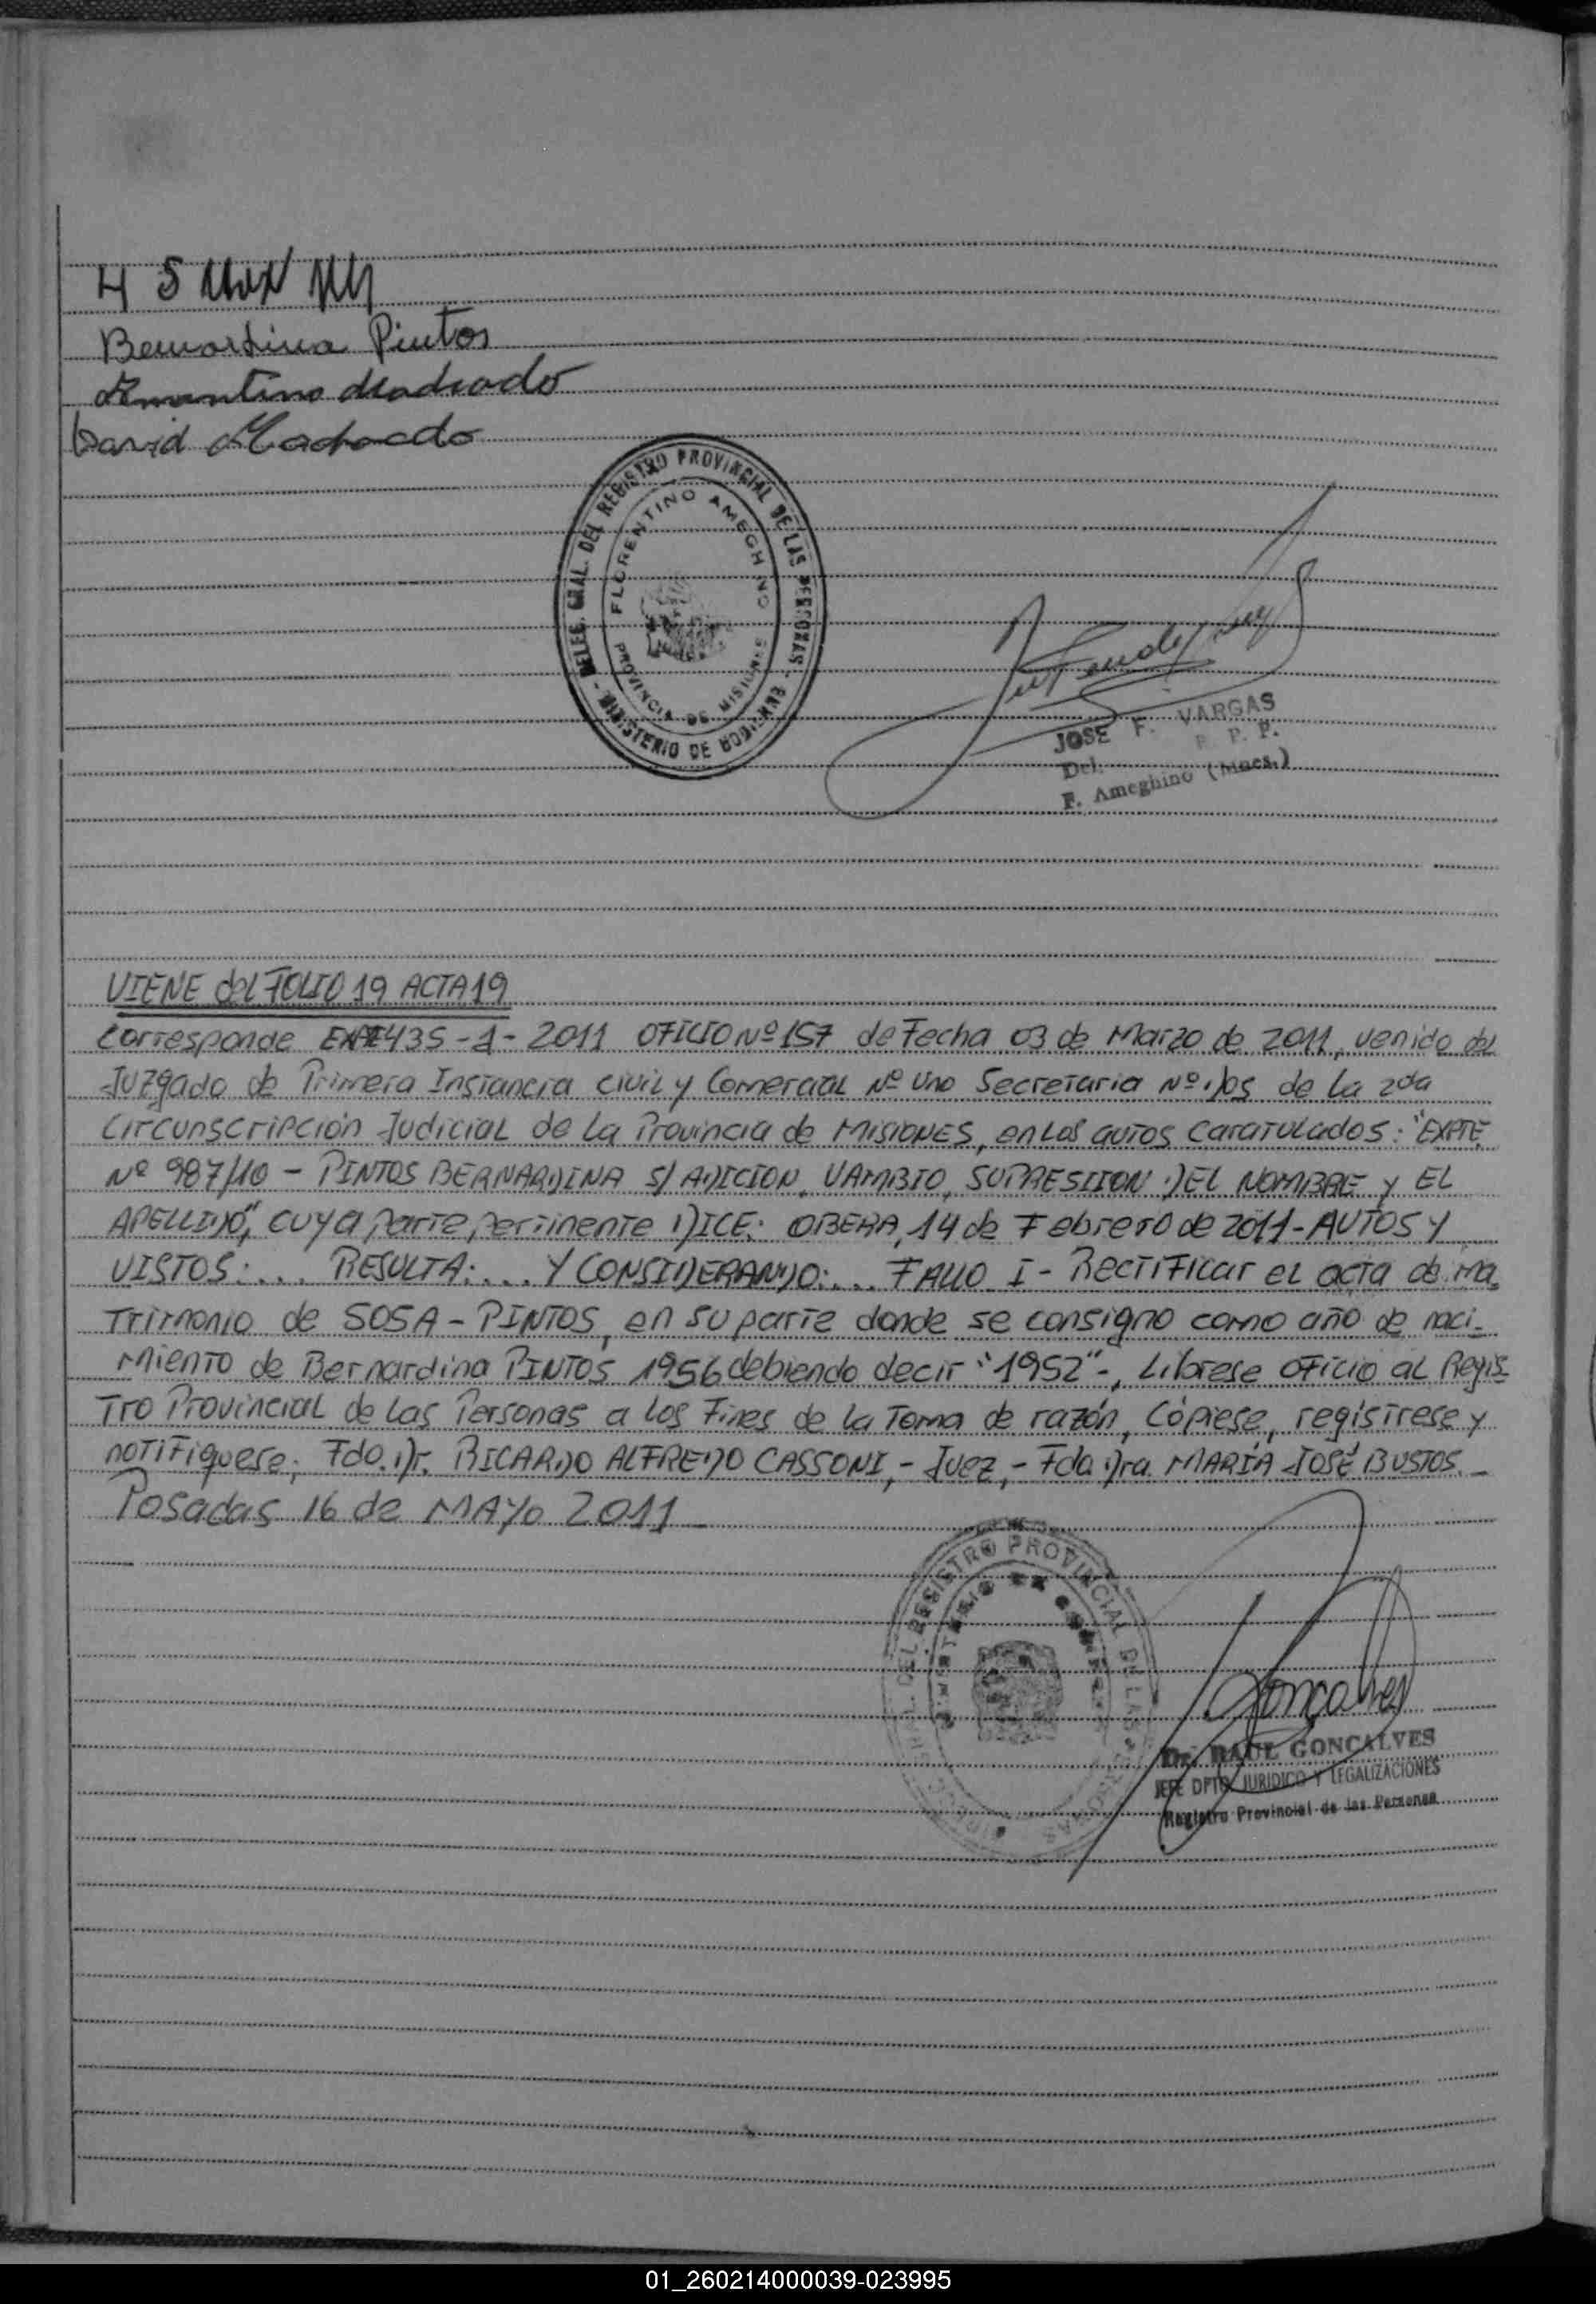 Bernardina Pintos
Amantino Machado
David Machado
DELEG. GRAL. DEL REGISTRO PROVINCIAL DE LAS PERSONAS - MINISTERIO DE GOBIERNO
FLORENTINO AMEGHINO
PROVINCIA DE MISIONES
JOSE F. VARGAS
Del. R. P. P.
F. Ameghino (Mnes.)
VIENE del FOLIO 19 ACTA 19
Corresponde EXPTE 435-1-2011 OFICIO Nº 157 de Fecha 03 de Marzo de 2011, venido del
Juzgado de Primera Instancia Civil y Comercial Nº Uno Secretaria Nº Dos de La 2da
Circunscripción Judicial de La Provincia de MISIONES, en Los autos Caratulados: "EXPTE
Nº 987/10 - PINTOS BERNARDINA S/ ADICION, CAMBIO, SUPRESIION DEL NOMBRE y EL
APELLIDO", cuya parte pertinente DICE: OBERA, 14 de Febrero de 2011- AUTOS Y
VISTOS:... RESULTA:... Y CONSIDERANDO:... FALLO I - Rectificar el acta de ma
Trimonio de SOSA - PINTOS, en su parte donde se consigno como año de naci-
miento de Bernardina PINTOS 1956 debiendo decir "1952"-, Librese oficio al Regis
Tro Provincial de Las Personas a los Fines de la Toma de razón, Cópiese, registrese y
notifiquese. Fdo. Dr. RICARDO ALFREDO CASSONI, - Juez, - Fda Dra. MARÍA JOSÉ BUSTOS. -
Posadas 16 de MAYO 2011
DEL REGISTRO PROVINCIAL DE LAS PERSONAS
Goncalves
Dr. RAUL GONCALVES
JEFE DPTO. JURIDICO Y LEGALIZACIONES
Registro Provincial de las Personas
01_260214000039-023995